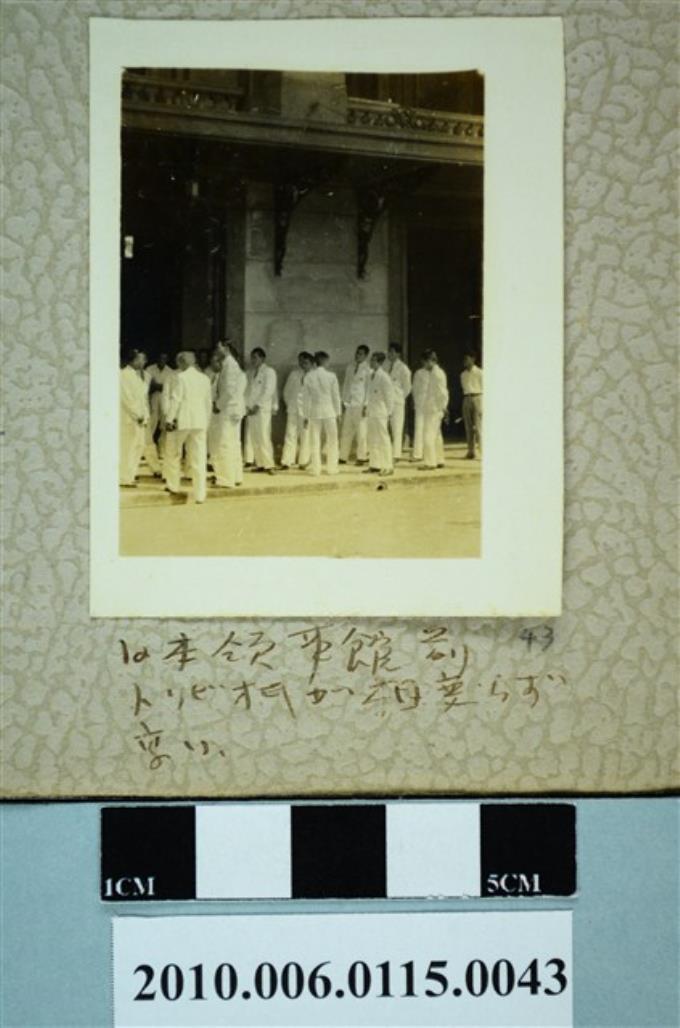 日本領事館前
43
トリビオ氏が相変らず
1CM
5CM
2010.006.0115.0043